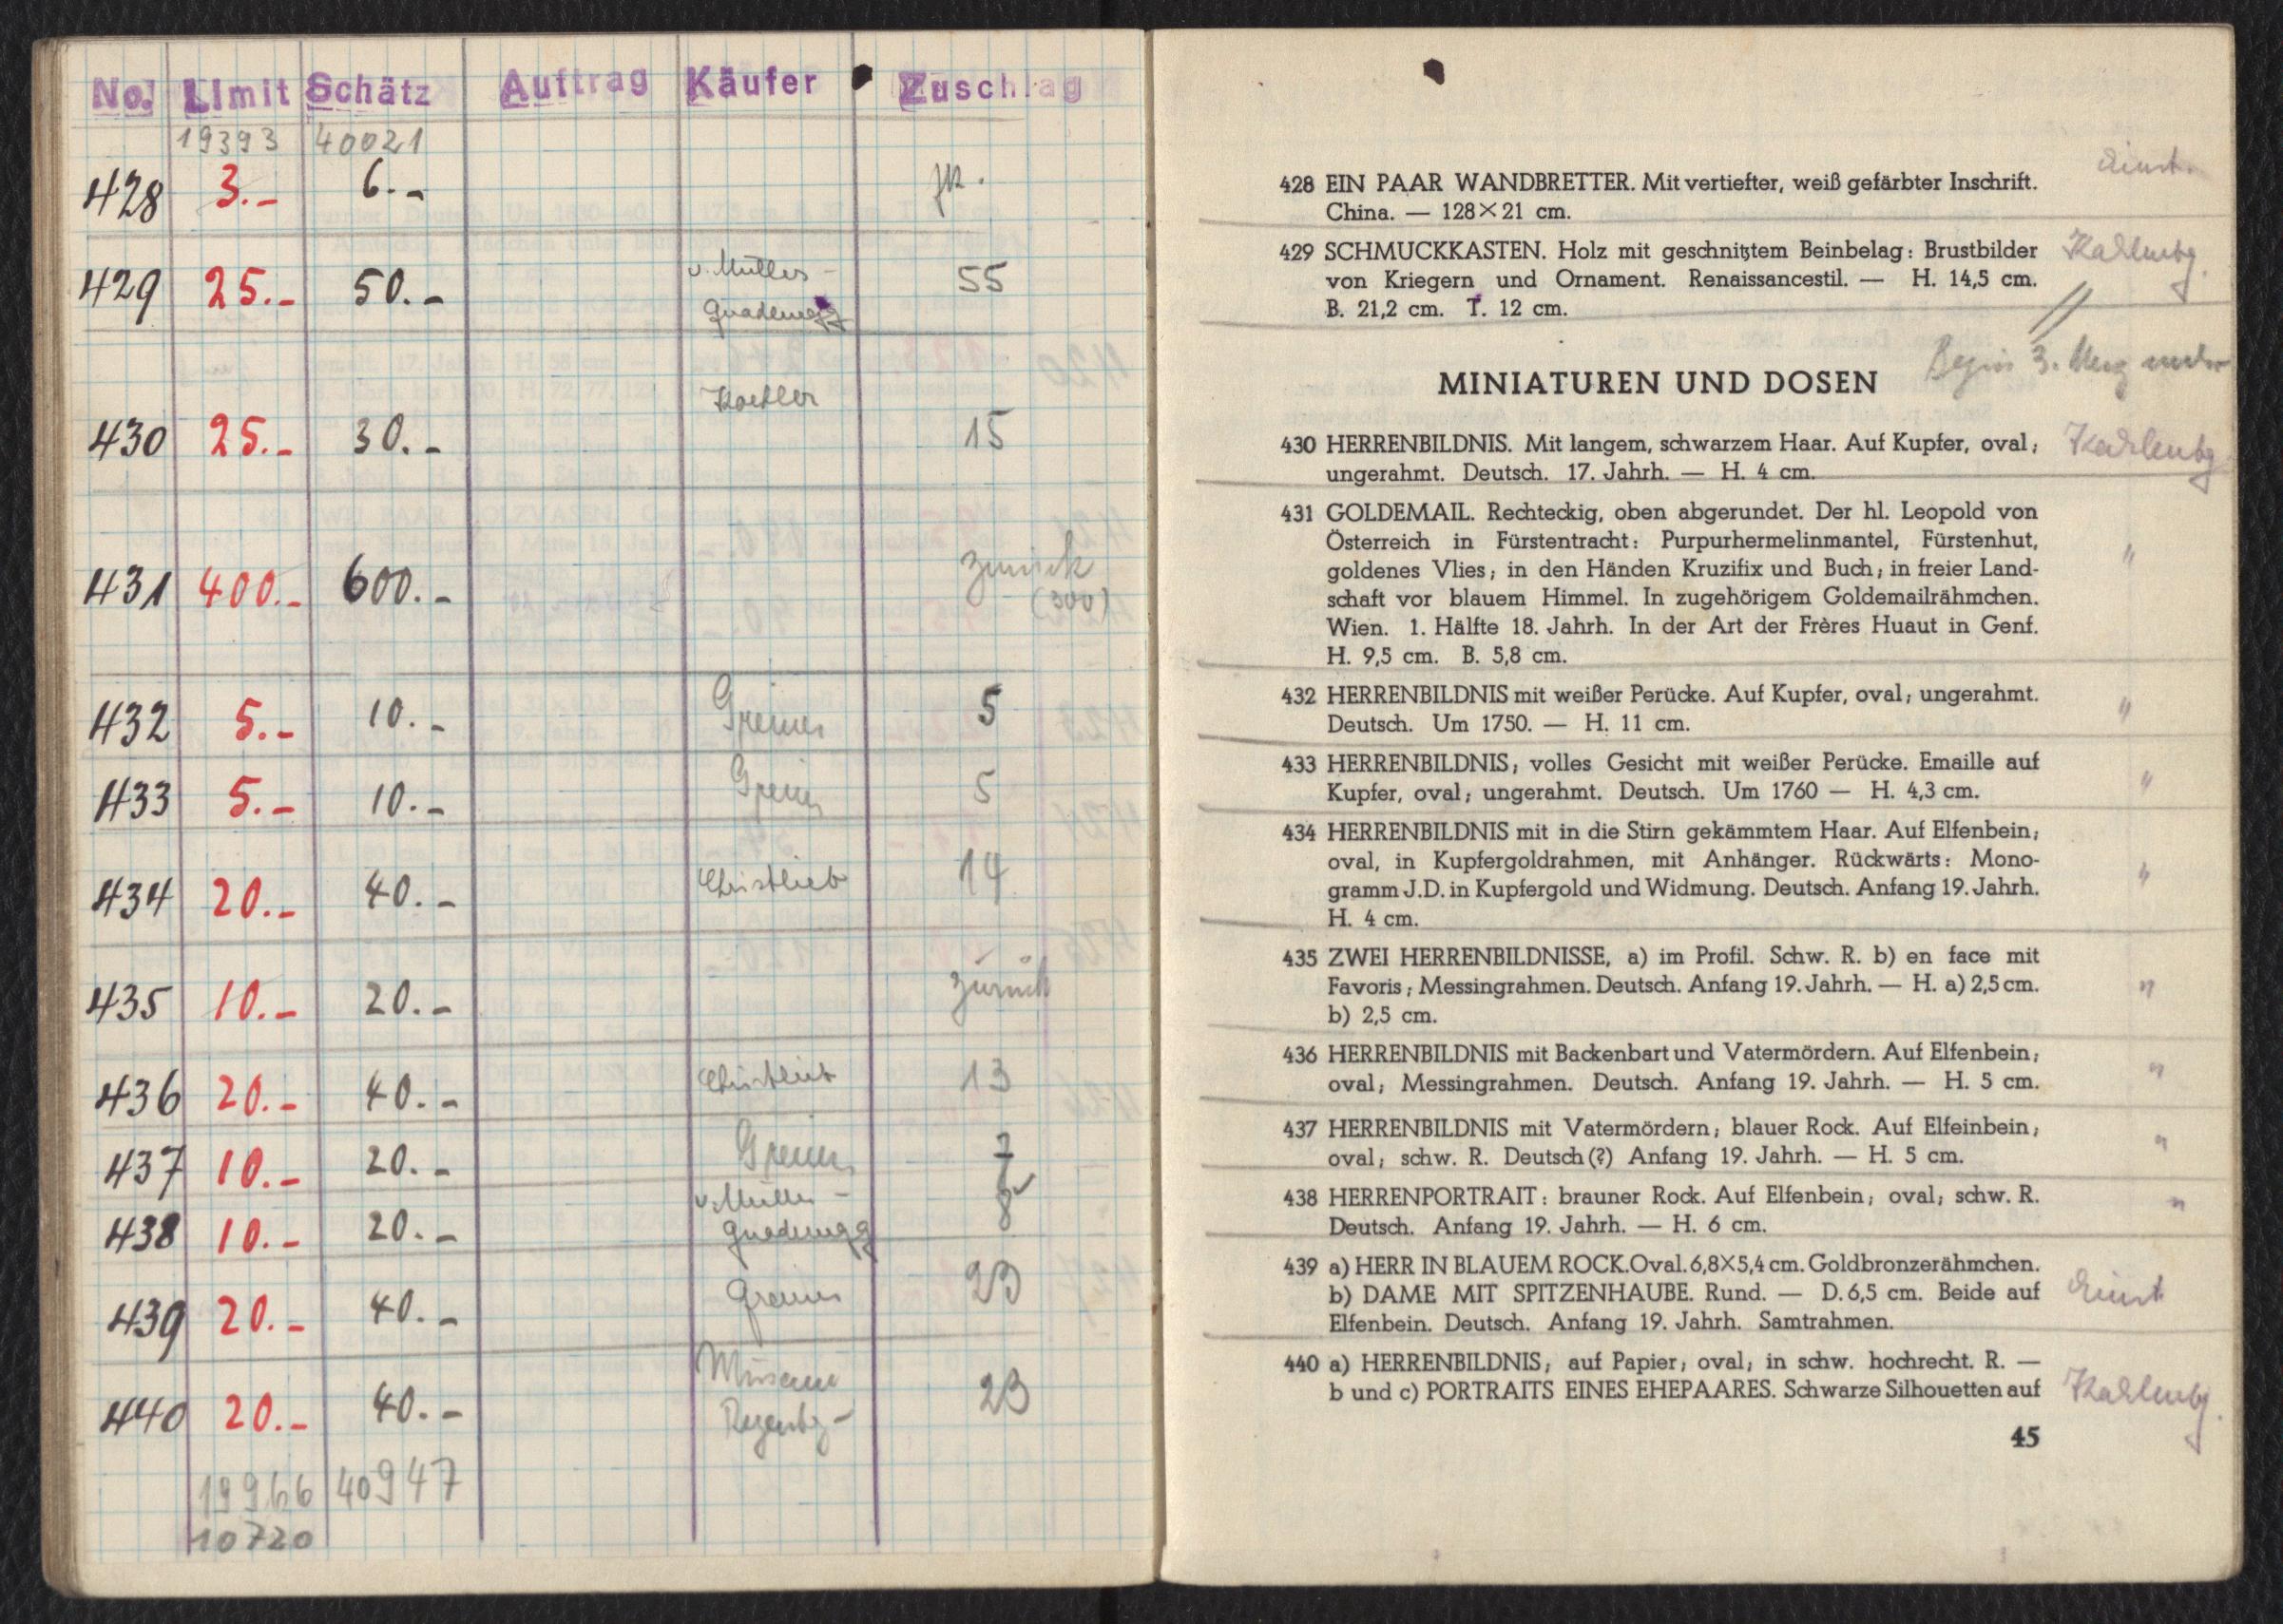 No. Limit Schätz Auftrag Käufer Zuschlag
19393 40021
428 3.- 6.-
429 25.- 50.- v. Müller- 55
Gnadenegg
430 25.- 30.- Koehler 15
431 400.- 600.- zurück
(300)
432 5.- 10.- Greiner 5
433 5.- 10.- Greiner 5
434 20.- 40.- Christlieb 14
435 10.- 20.- zurück
436 20.- 40.- Christlieb 13
437 10.- 20.- Greiner 7
438 10.- 20.- v. Müller- 8
Gnadenegg
439 20.- 40.- Greiner 23
440 20.- 40.- Museum 23
Regensbg-
19966 40947
10720
428 EIN PAAR WANDBRETTER. Mit vertiefter, weiß gefärbter Inschrift.
China. — 128×21 cm.
429 SCHMUCKKASTEN. Holz mit geschnitztem Beinbelag: Brustbilder
von Kriegern und Ornament. Renaissancestil. — H. 14,5 cm.
B. 21,2 cm. T. 12 cm.
Beginn 3.
MINIATUREN UND DOSEN
430 HERRENBILDNIS. Mit langem, schwarzem Haar. Auf Kupfer, oval;
ungerahmt. Deutsch. 17. Jahrh. — H. 4 cm.
431 GOLDEMAIL. Rechteckig, oben abgerundet. Der hl. Leopold von
Österreich in Fürstentracht: Purpurhermelinmantel, Fürstenhut,
goldenes Vlies; in den Händen Kruzifix und Buch; in freier Land-
schaft vor blauem Himmel. In zugehörigem Goldemailrähmchen.
Wien. 1. Hälfte 18. Jahrh. In der Art der Frères Huaut in Genf.
H. 9,5 cm. B. 5,8 cm.
"
432 HERRENBILDNIS mit weißer Perücke. Auf Kupfer, oval; ungerahmt.
Deutsch. Um 1750. — H. 11 cm.
"
433 HERRENBILDNIS; volles Gesicht mit weißer Perücke. Emaille auf
Kupfer, oval; ungerahmt. Deutsch. Um 1760 — H. 4,3 cm.
"
434 HERRENBILDNIS mit in die Stirn gekämmtem Haar. Auf Elfenbein;
oval, in Kupfergoldrahmen, mit Anhänger. Rückwärts: Mono-
gramm J.D. in Kupfergold und Widmung. Deutsch. Anfang 19. Jahrh.
H. 4 cm.
"
435 ZWEI HERRENBILDNISSE, a) im Profil. Schw. R. b) en face mit
Favoris; Messingrahmen. Deutsch. Anfang 19. Jahrh. — H. a) 2,5 cm.
b) 2,5 cm.
"
436 HERRENBILDNIS mit Backenbart und Vatermördern. Auf Elfenbein;
oval; Messingrahmen. Deutsch. Anfang 19. Jahrh. — H. 5 cm.
"
437 HERRENBILDNIS mit Vatermördern; blauer Rock. Auf Elfeinbein;
oval; schw. R. Deutsch (?) Anfang 19. Jahrh. — H. 5 cm.
"
438 HERRENPORTRAIT: brauner Rock. Auf Elfenbein; oval; schw. R.
Deutsch. Anfang 19. Jahrh. — H. 6 cm.
"
439 a) HERR IN BLAUEM ROCK. Oval. 6,8×5,4 cm. Goldbronzerähmchen.
b) DAME MIT SPITZENHAUBE. Rund. — D. 6,5 cm. Beide auf
Elfenbein. Deutsch. Anfang 19. Jahrh. Samtrahmen.
440 a) HERRENBILDNIS; auf Papier; oval; in schw. hochrecht. R. —
b und c) PORTRAITS EINES EHEPAARES. Schwarze Silhouetten auf
45